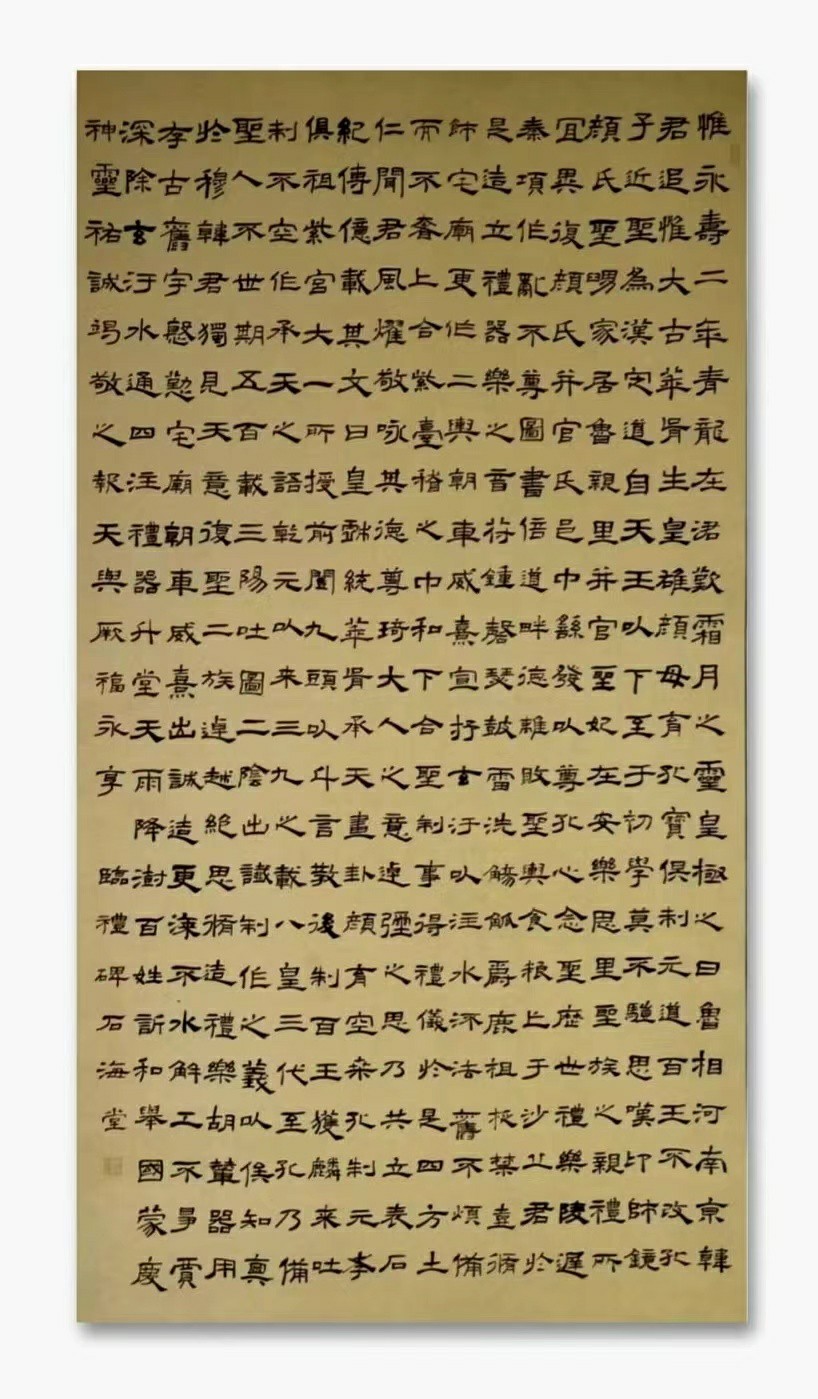 惟永壽二年青龍在涒歎霜月之靈皇極之日魯相河南京韓
君追惟大古華胥生皇雄顏母育孔寶俱制元道百王不改孔
子近聖為漢定道自天王以下至于初學莫不驥思嘆卬師鏡
顏氏聖舅家居魯親里并官聖妃在安樂思里聖族之親禮所
宜異復顏氏并官氏邑中繇發以尊孔心念聖歷世禮樂陵遲
秦項作亂不尊圖書倍道畔德離敗聖輿食粮亡于沙丘君於
是造立禮器樂之音符鍾磬瑟鼓雷洗觴觚爵鹿祖柉禁壺脩
飾宅廟更作二輿朝車威熹宣抒玄汙以注水流法舊不煩備
而不奢上合紫臺稽之中和下合聖制事得禮儀於是四方土
仁聞君風燿敬咏其德尊琦大人之意逴彌之思乃共立表石
紀傳億載其文曰皇戲統華胥承天畫卦顏育空桑孔制元孝
俱祖紫宮大一所授前闓九頭以斗言教後制百王獲麟來吐
制不空作承天之語乾元以來三九之載八皇三代至孔乃備
聖人不世期五百載三陽吐圖二陰出讖制作之義以俟知奧
於穆韓君獨見天意復聖二族逴越絕思脩造禮樂胡輦器用
存古舊宇慇懃宅廟朝車威熹出誠造更漆不水解工不爭賈
深除玄汙水通四注禮器升堂天雨降澍百姓訢和舉國蒙慶
神靈祐誠竭敬之報天與厥福永享
臨禮碑石海堂